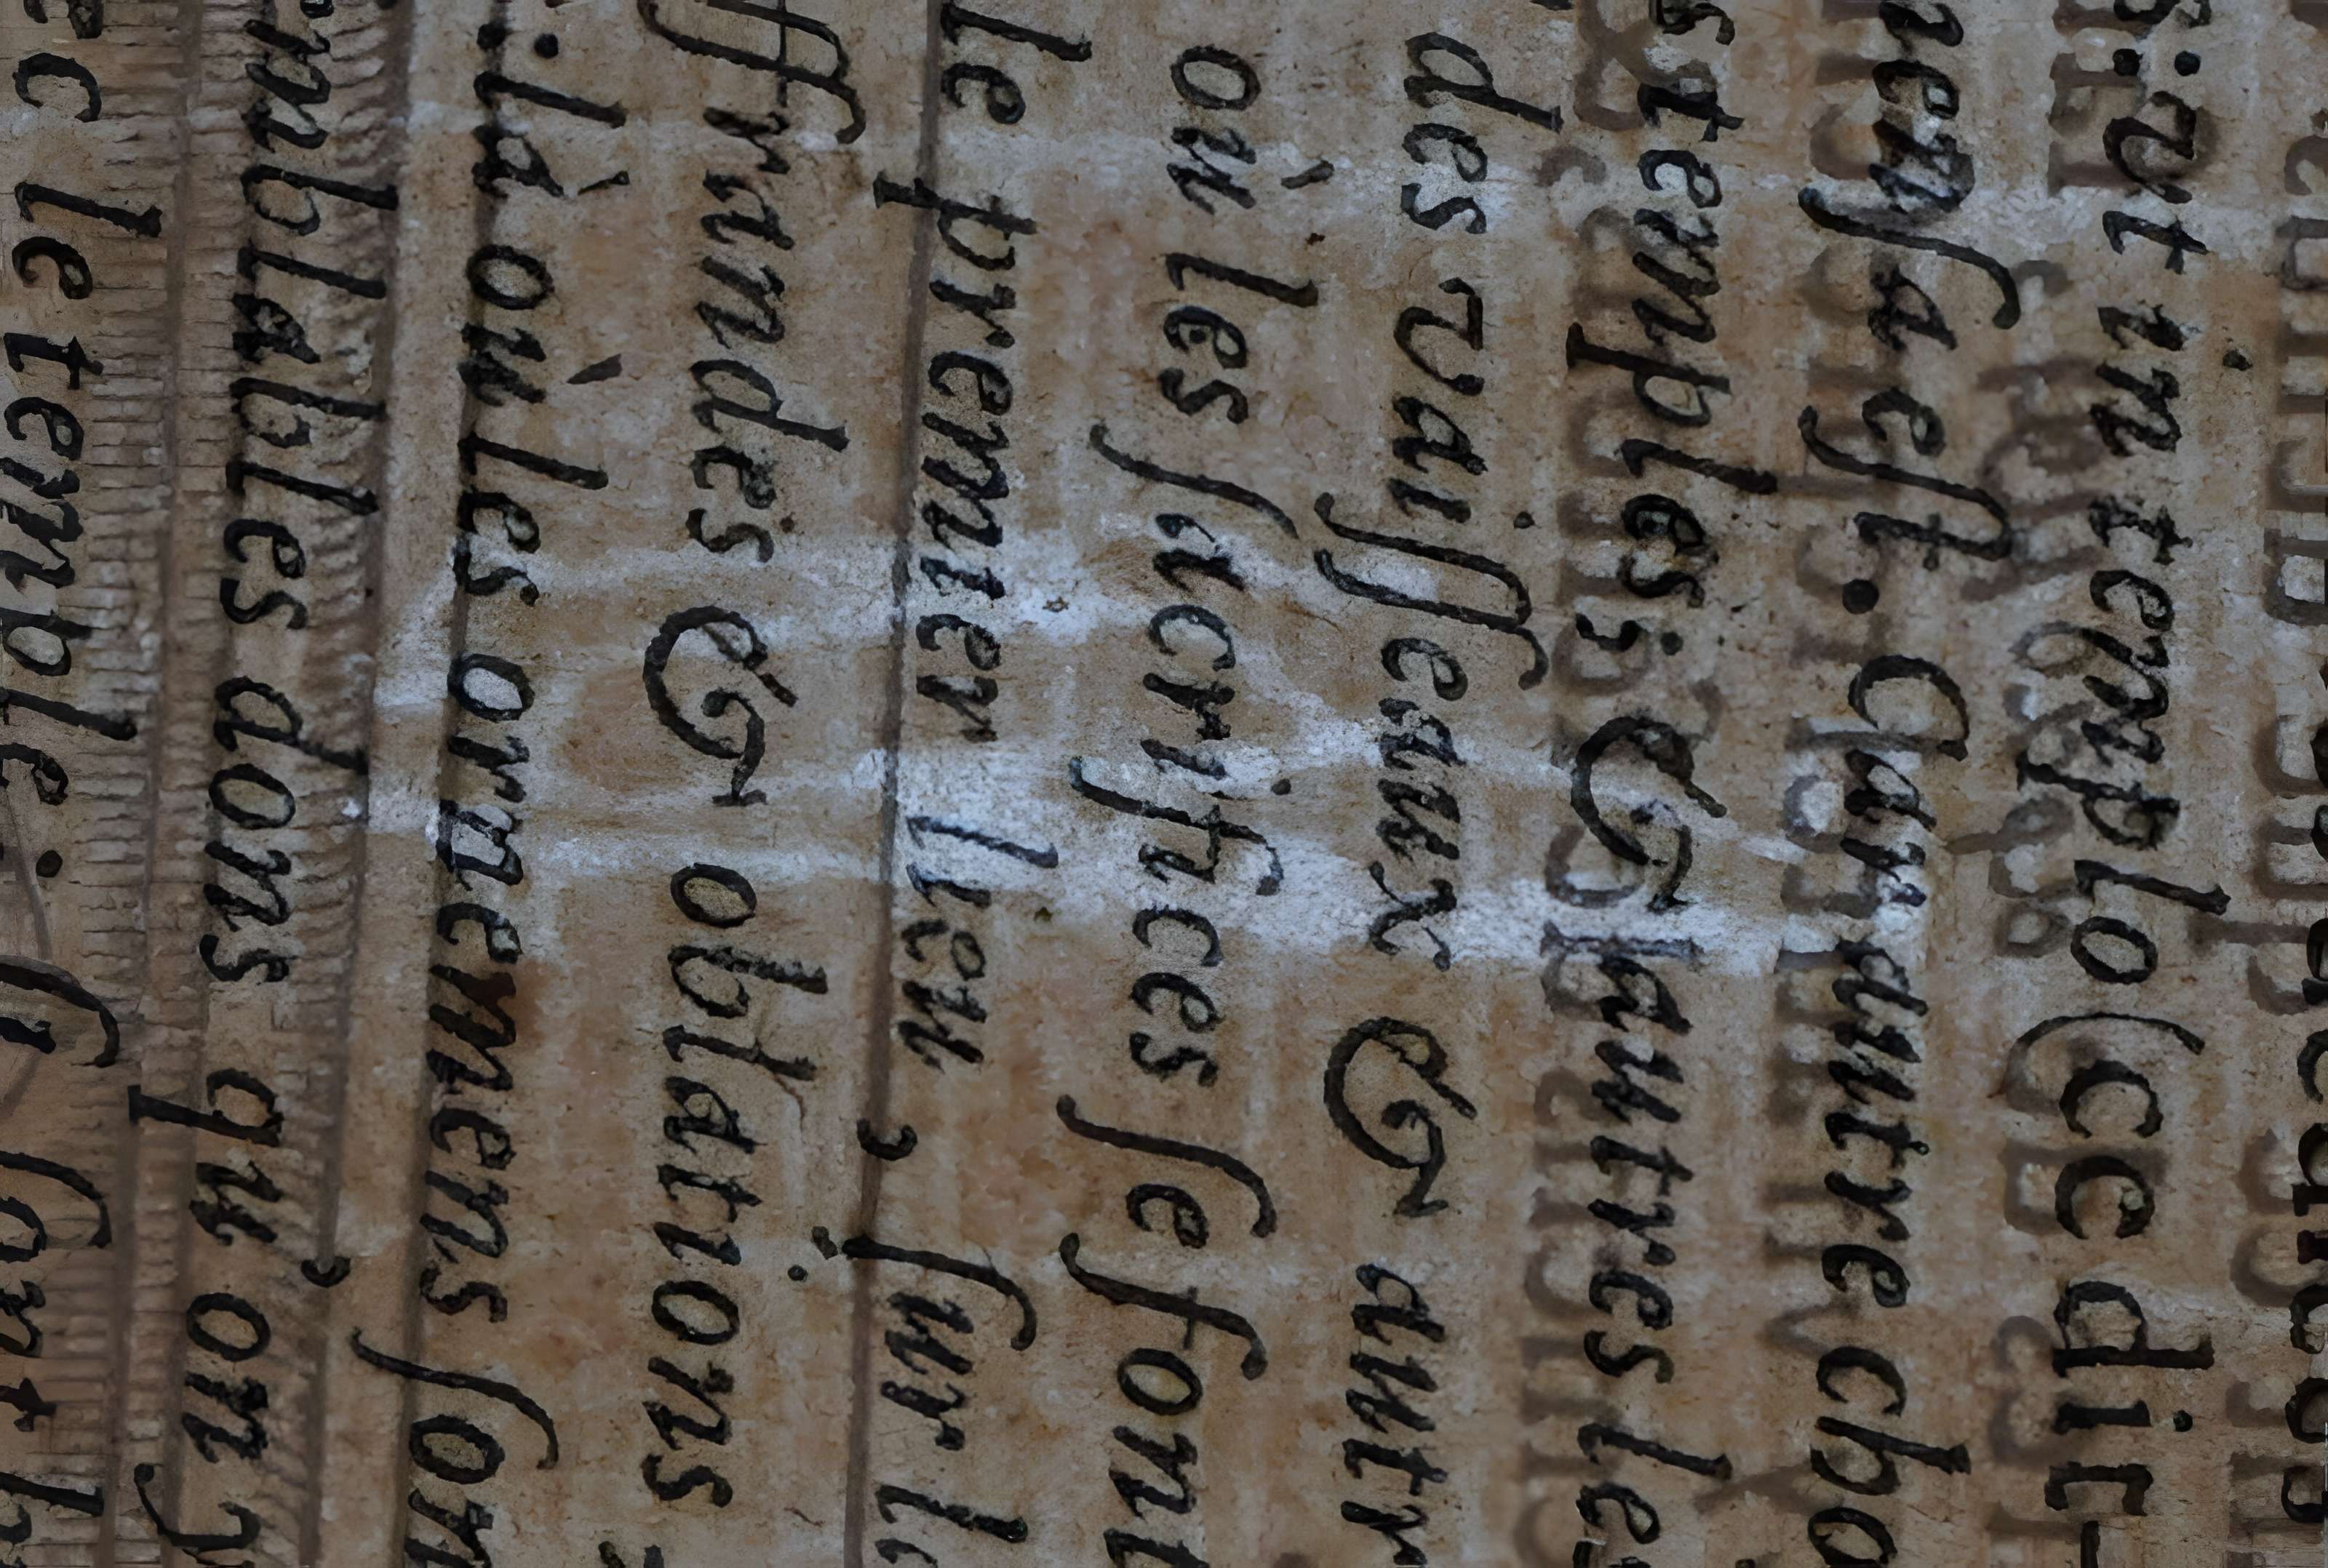 s: vt in templo (cc dit
nenſa eſt. Car autre cho
s temples: & lautres le
des vaiſſeaux & autr
où les ſacrifices ſe font
le premier lieu, ſur l
ffrandes & oblations
: là où les ornemens ſon
nblables dons qu'on y
ec le temple.